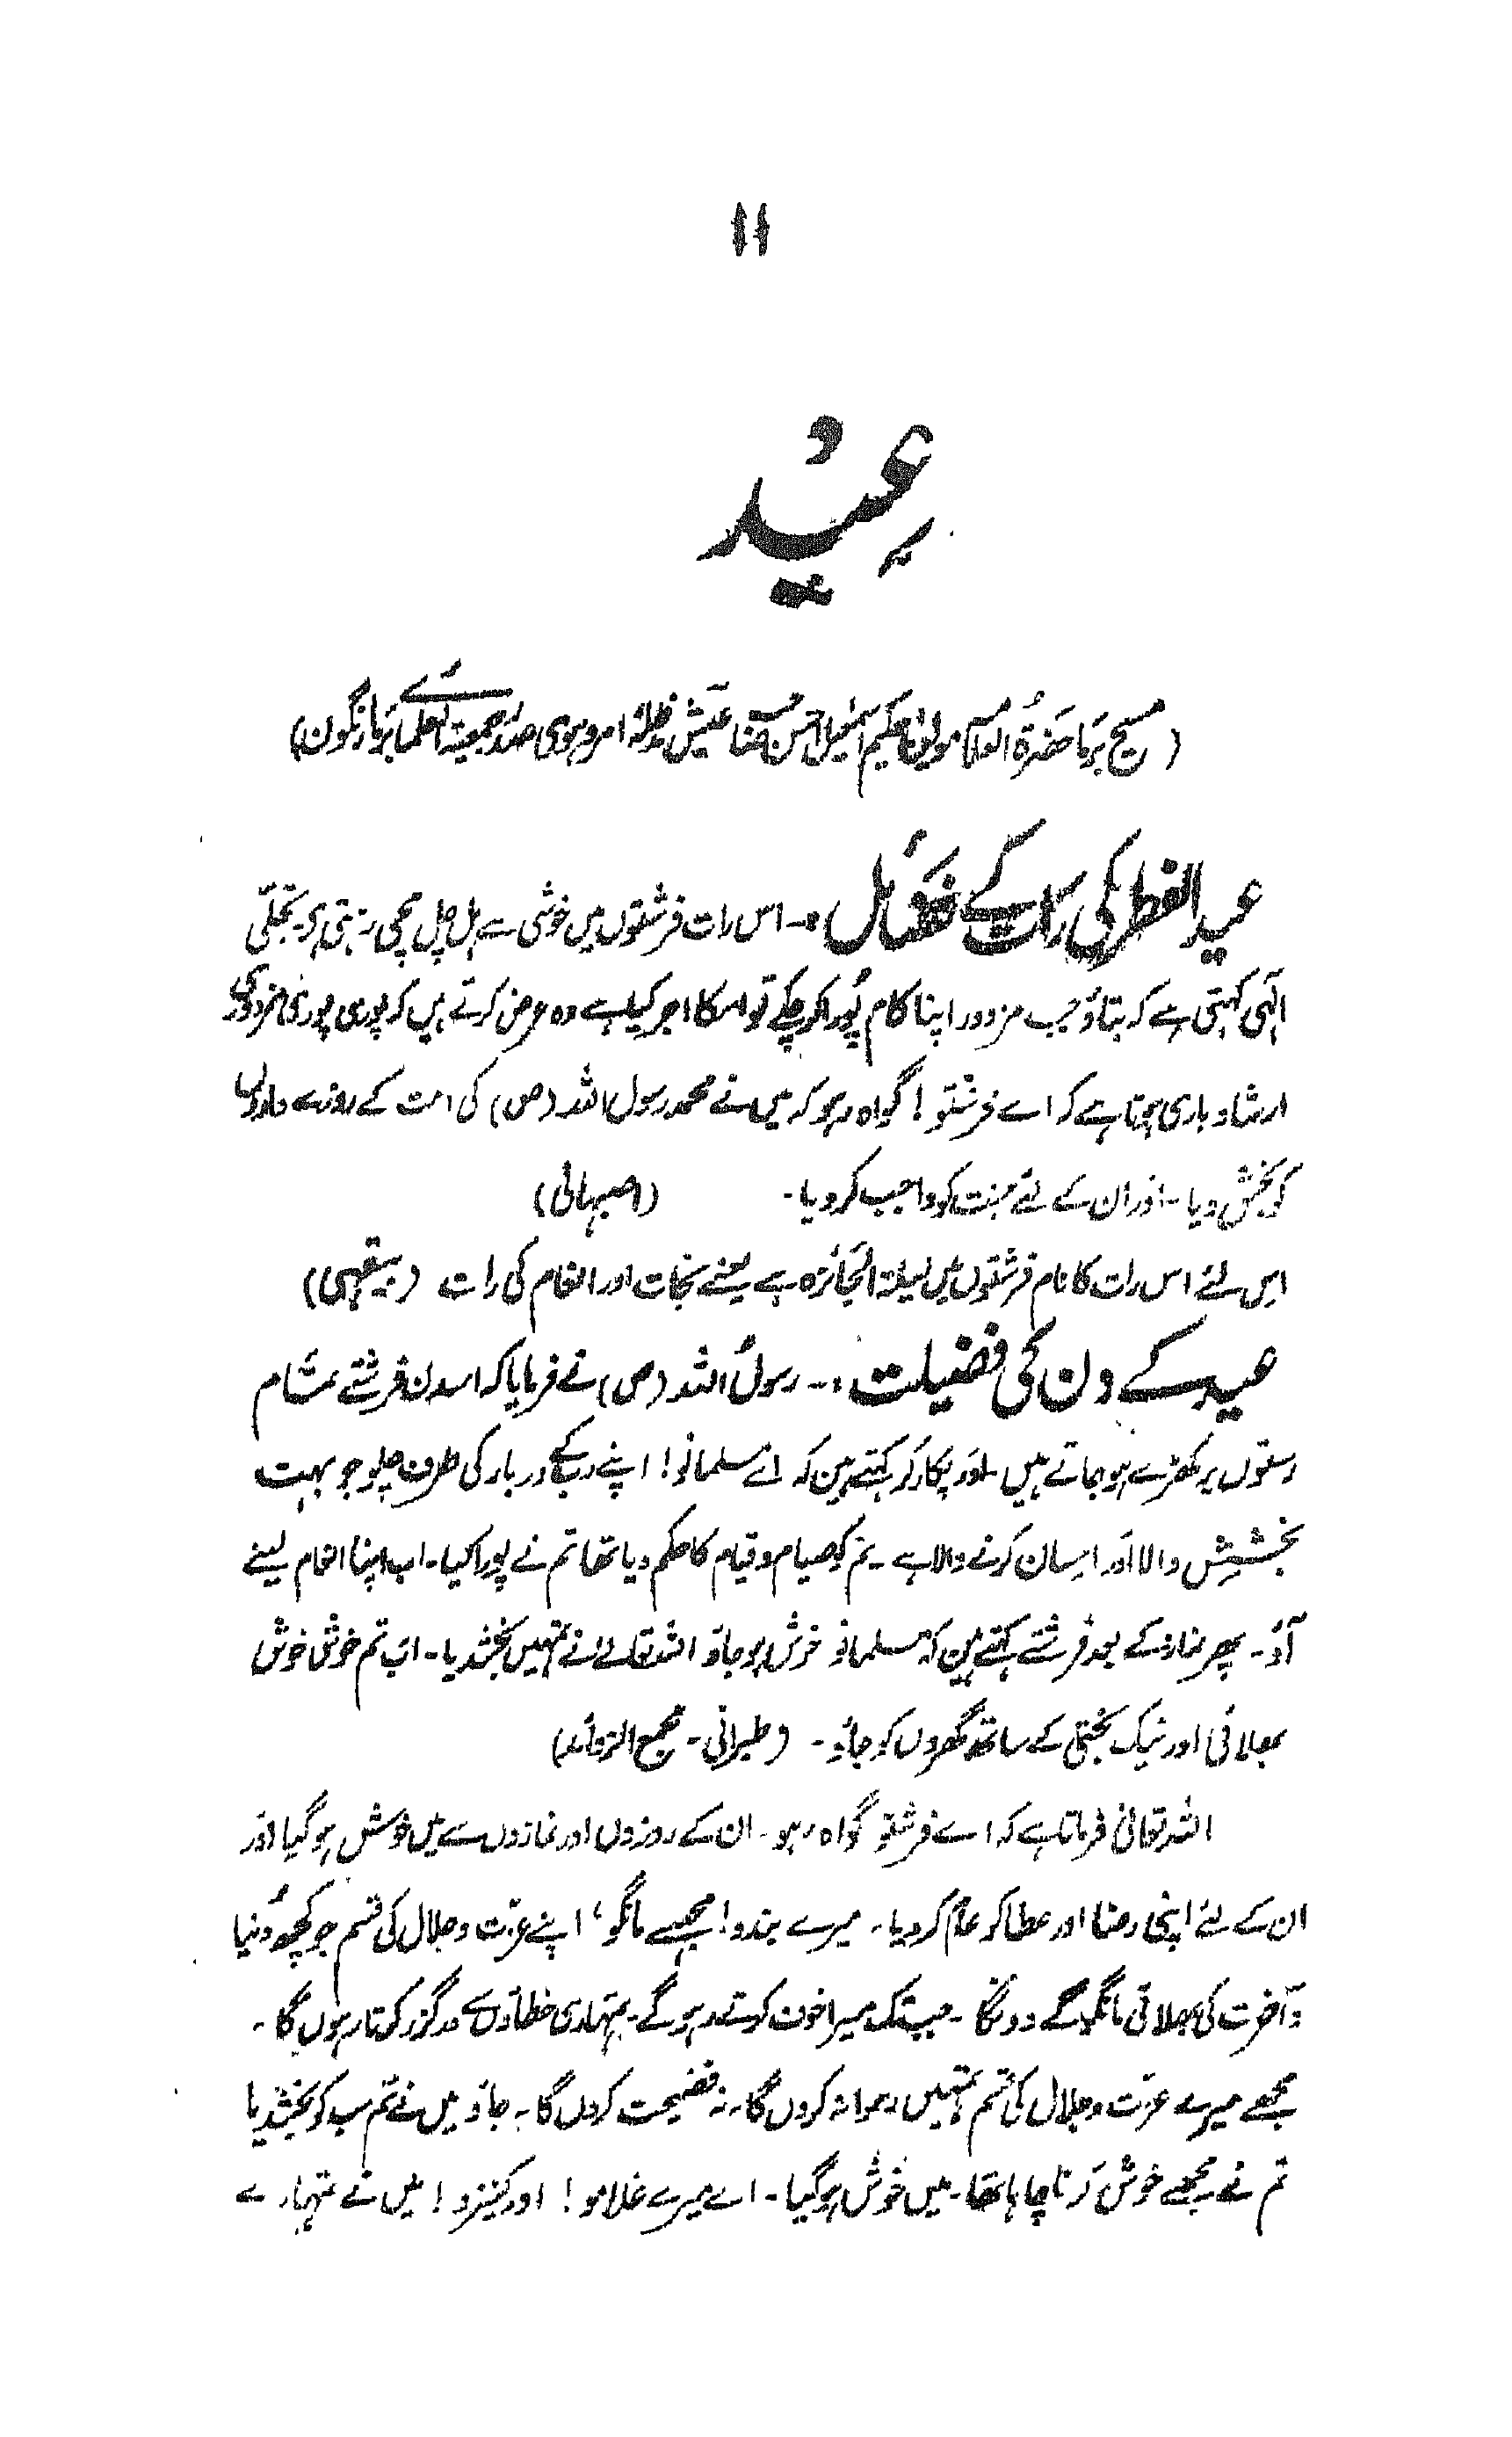 ۱۱
عید
(مسیح برما حضرۃ العلام مولینا حکیم اسمٰعیل احسن صاحب عیش مدظلہٗ امروہوی صدر جمعیۃ العلمائے برما رنگون)
عید الفطر کی رات کے فضائل :- اس رات فرشتوں میں خوشی سے ہل چل مچی رہتی ہے تجلّی
الٰہی کہتی ہے کہ بتاؤ جب مزدور اپنا کام پُورا کر چکے تو اسکا اجر کیا ہے وہ عرض کرتے ہیں کہ پوری پوری مزدوری
ارشاد باری ہوتا ہے کہ اے فرشتو! گواہ رہو کہ میں نے محمد رسول اللہ (ص) کی امت کے روزے داروں
کو بخش دیا - اور ان کے لئے جنت کو واجب کر دیا - (اصبہانی)
اس لئے اس رات کا نام فرشتوں میں لیلۃ الجائزہ ہے یعنے نجات اور انعام کی رات (بیہقی)
عید کے دن کی فضیلت :- رسول اللہ (ص) نے فرمایا کہ اسدن فرشتے تمام
رستوں پر کھڑے ہو جاتے ہیں - اور پکار کر کہتے ہین کہ اے مسلمانو! اپنے رب کے دربار کی طرف چلو جو بہت
بخشش والا اور احسان کرنے والا ہے - تم کو صیام و قیام کا حکم دیا تھا تم نے پورا کیا - اب اپنا انعام لینے
آؤ - پھر نماز کے بعد فرشتے کہتے ہین کہ مسلمانو خوش ہو جاؤ اللہ تعالےٰ نے تمہیں بخشدیا - اب تم خوش خوش
بھلائی اور نیک بختی کے ساتھ گھروں کو جاؤ - (طبرانی - مجمع الزوائد)
اللہ تعالیٰ فرماتا ہے کہ اے فرشتو گواہ رہو - ان کے روزوں اور نمازوں سے میں خوش ہو گیا اور
ان کے لئے اپنی رضا اور عطا کو عام کر دیا - میرے بندو! مجھسے مانگو، اپنے عزّت و جلال کی قسم جو کچھ دُنیا
و آخرت کی بھلائی مانگو گے دونگا - جبتک میرا خوف کرتے رہو گے - تمہاری خطاؤں سے درگزر کرتا رہوں گا -
مجھے میرے عزّت و جلال کی قسم تمہیں رسوا نہ کروں گا - نہ فضیحت کروں گا - جاؤ میں نے تم سب کو بخشدیا
تم نے مجھے خوش کرنا چاہا تھا - میں خوش ہو گیا - اے میرے غلامو! اور کنیزو! میں نے تمہارے